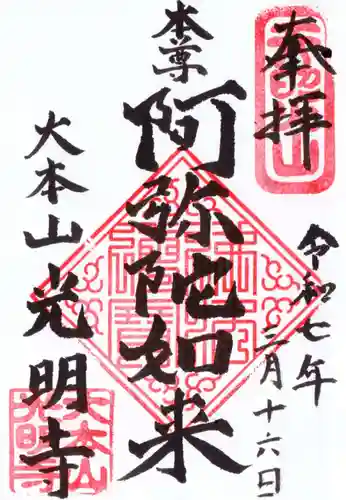 奉拝
令和七年
三月十六日
本尊
阿弥陀如来
大本山
光明寺
大本山
光明寺